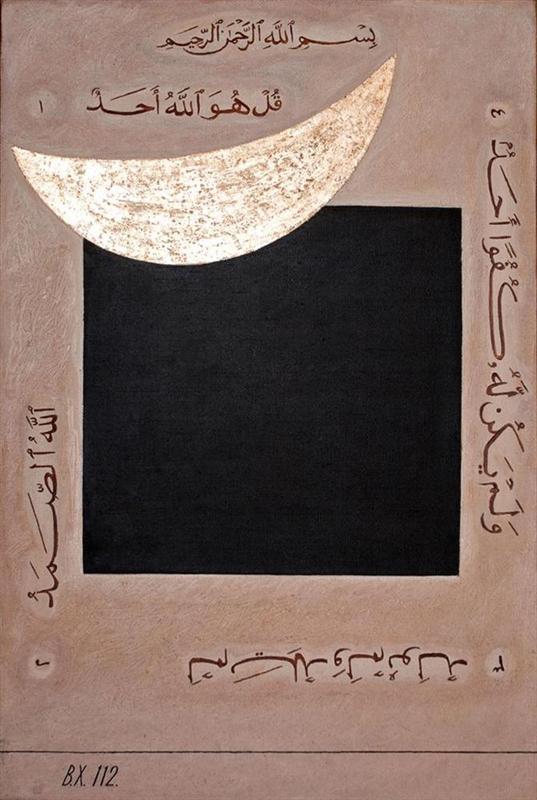 بِسْمِ ٱللَّهِ ٱلرَّحْمَٰنِ ٱلرَّحِيمِ
قُلْ هُوَ ٱللَّهُ أَحَدٌ ١
ٱللَّهُ ٱلصَّمَدُ ٢
لَمْ يَلِدْ وَلَمْ يُولَدْ ٣
وَلَمْ يَكُن لَّهُۥ كُفُوًا أَحَدٌۢ ٤
B.X. 112.